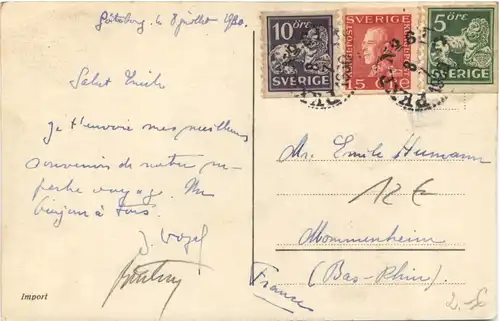 Göteborg le 8 juillet 1930.
Salut Emile
Je t'envoie mes meilleurs
souvenirs de notre
voyage. Un
bonjour à tous.
J. Vogel
Import
10 ÖRE
SVERIGE
SVERIGE
15 ÖRE
5 ÖRE
SVERIGE
Mr. Emile Humann
12 €
Mommenheim
(Bas-Rhin)
France